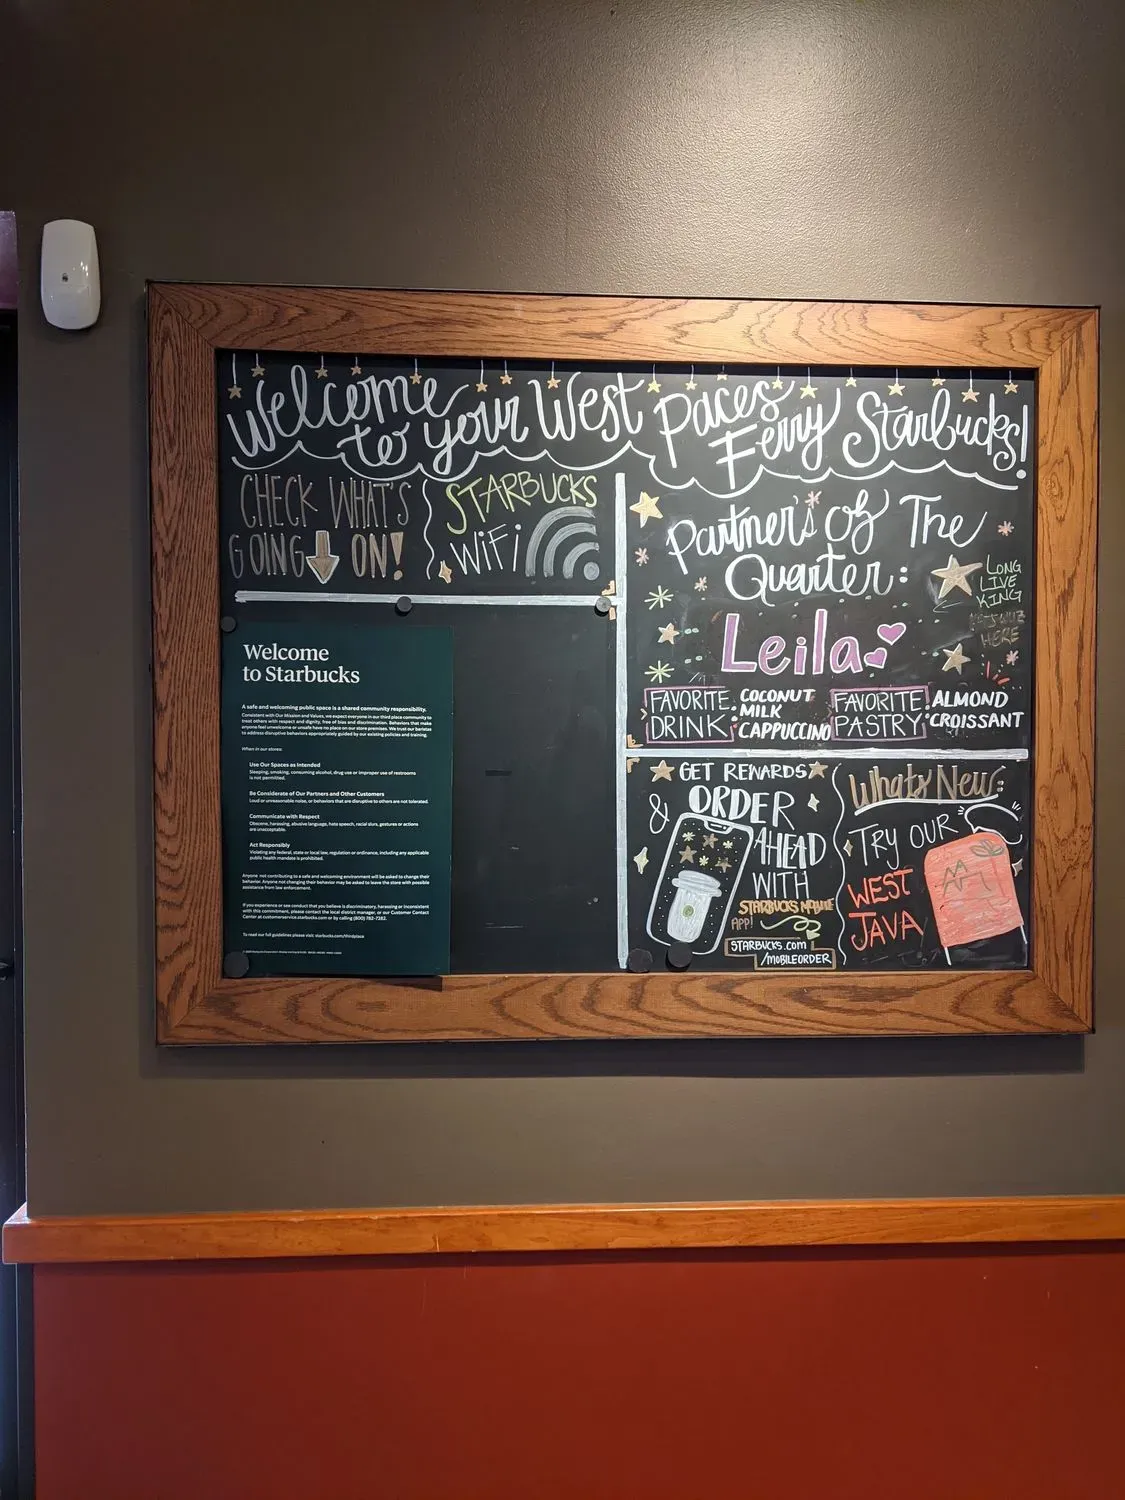 Welcome
to your West Paces
Ferry Starbucks!
CHECK WHAT'S
GOING ON!
STARBUCKS
WiFi
Welcome
to Starbucks
A safe and welcoming public space is a shared community responsibility.
Consistent with Our Mission and Values, we expect everyone in our third place community to
treat others with respect and dignity, free of bias and discrimination. Behaviors that make
anyone feel unwelcome or unsafe have no place on our store premises. We trust our baristas
to address disruptive behaviors appropriately guided by our existing policies and training.
When in our stores:
Use Our Spaces as Intended
Sleeping, smoking, consuming alcohol, drug use or improper use of restrooms
is not permitted.
Be Considerate of Our Partners and Other Customers
Loud or unreasonable noise, or behaviors that are disruptive to others are not tolerated.
Communicate with Respect
Obscene, harassing, abusive language, hate speech, racial slurs, gestures or actions
are unacceptable.
Act Responsibly
Violating any federal, state or local law, regulation or ordinance, including any applicable
public health mandate is prohibited.
Anyone not contributing to a safe and welcoming environment will be asked to change their
behavior. Anyone not changing their behavior may be asked to leave the store with possible
assistance from law enforcement.
If you experience or see conduct that you believe is discriminatory, harassing or inconsistent
with this commitment, please contact the local district manager, or our Customer Contact
Center at customerservice.starbucks.com or by calling (800) 782-7282.
To read our full guidelines please visit: starbucks.com/thirdplace
Partner's of The
Quarter:
LONG
LIVE
KING
HERE
Leila
FAVORITE DRINK:
COCONUT
MILK
CAPPUCCINO
FAVORITE PASTRY:
ALMOND
CROISSANT
GET REWARDS
& ORDER
AHEAD
WITH
STARBUCKS MOBILE
APP!
STARBUCKS.COM
/MOBILEORDER
What's New:
TRY OUR
WEST
JAVA